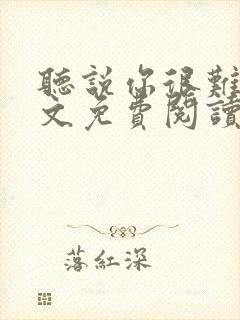 聽說你很難
文免費閱讀
落紅深